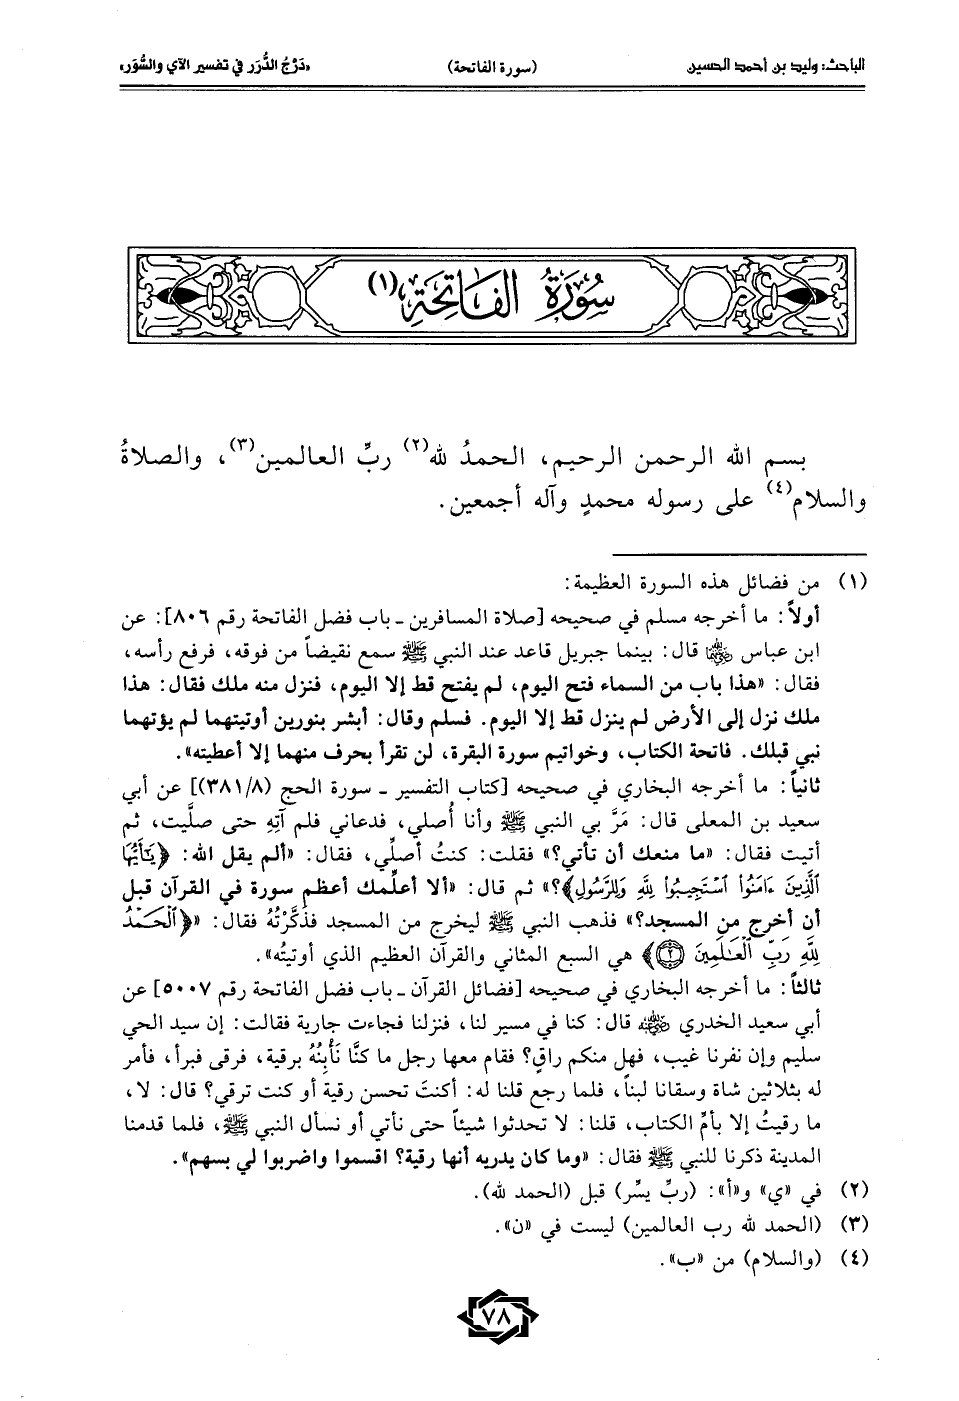 الباحث: وليد بن أحمد الحسين (سورة الفاتحة) «دَرْجُ الدُّرَر في تفسير الآي والسُّوَر»
سُورَةُ الفَاتِحَةِ(١)
بسم الله الرحمن الرحيم، الحمدُ لله(٢) ربِّ العالمين(٣)، والصلاةُ
والسلام(٤) على رسوله محمدٍ وآله أجمعين.
(١) من فضائل هذه السورة العظيمة:
أولاً: ما أخرجه مسلم في صحيحه [صلاة المسافرين ـ باب فضل الفاتحة رقم ٨٠٦]: عن
ابن عباس رضي الله عنهما قال: بينما جبريل قاعد عند النبي ﷺ سمع نقيضاً من فوقه، فرفع رأسه،
فقال: «هذا باب من السماء فتح اليوم، لم يفتح قط إلا اليوم، فنزل منه ملك فقال: هذا
ملك نزل إلى الأرض لم ينزل قط إلا اليوم. فسلم وقال: أبشر بنورين أوتيتهما لم يؤتهما
نبي قبلك. فاتحة الكتاب، وخواتيم سورة البقرة، لن تقرأ بحرف منهما إلا أعطيته».
ثانياً: ما أخرجه البخاري في صحيحه [كتاب التفسير ـ سورة الحج (٣٨١/٨)] عن أبي
سعيد بن المعلى قال: مَرَّ بي النبي ﷺ وأنا أُصلي، فدعاني فلم آتِهِ حتى صلَّيت، ثم
أتيت فقال: «ما منعك أن تأتي؟» فقلت: كنتُ أصلِّي، فقال: «ألم يقل الله: ﴿يَٰٓأَيُّهَا
ٱلَّذِينَ ءَامَنُوا۟ ٱسْتَجِيبُوا۟ لِلَّهِ وَلِلرَّسُولِ﴾؟» ثم قال: «ألا أعلِّمك أعظم سورة في القرآن قبل
أن أخرج من المسجد؟» فذهب النبي ﷺ ليخرج من المسجد فذكَّرْتُهُ فقال: «﴿ٱلْحَمْدُ
لِلَّهِ رَبِّ ٱلْعَٰلَمِينَ ٢﴾ هي السبع المثاني والقرآن العظيم الذي أوتيتُه».
ثالثاً: ما أخرجه البخاري في صحيحه [فضائل القرآن ـ باب فضل الفاتحة رقم ٥٠٠٧] عن
أبي سعيد الخدري رضي الله عنه قال: كنا في مسير لنا، فنزلنا فجاءت جارية فقالت: إن سيد الحي
سليم وإن نفرنا غيب، فهل منكم راقٍ؟ فقام معها رجل ما كنَّا نَأْبِنُهُ برقية، فرقى فبرأ، فأمر
له بثلاثين شاة وسقانا لبناً، فلما رجع قلنا له: أكنتَ تحسن رقية أو كنت ترقي؟ قال: لا،
ما رقيتُ إلا بأمِّ الكتاب، قلنا: لا تحدثوا شيئاً حتى نأتي أو نسأل النبي ﷺ، فلما قدمنا
المدينة ذكرنا للنبي ﷺ فقال: «وما كان يدريه أنها رقية؟ اقسموا واضربوا لي بسهم».
(٢) في «ي» و«أ»: (ربِّ يسِّر) قبل (الحمد لله).
(٣) (الحمد لله رب العالمين) ليست في «ن».
(٤) (والسلام) من «ب».
٧٨